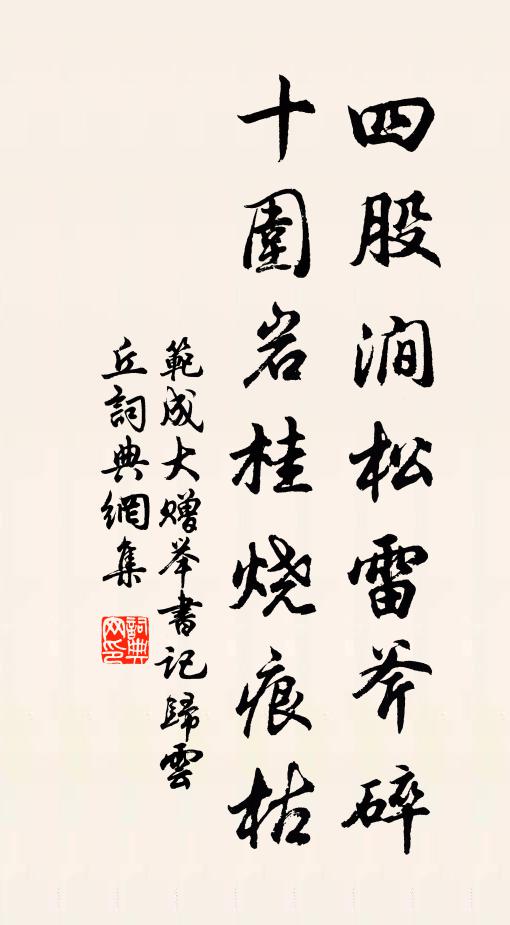 四股涧松雷斧碎
十圍岩桂烧痕枯
範成大赠举書记歸雲
丘詞典網集
詞典网印